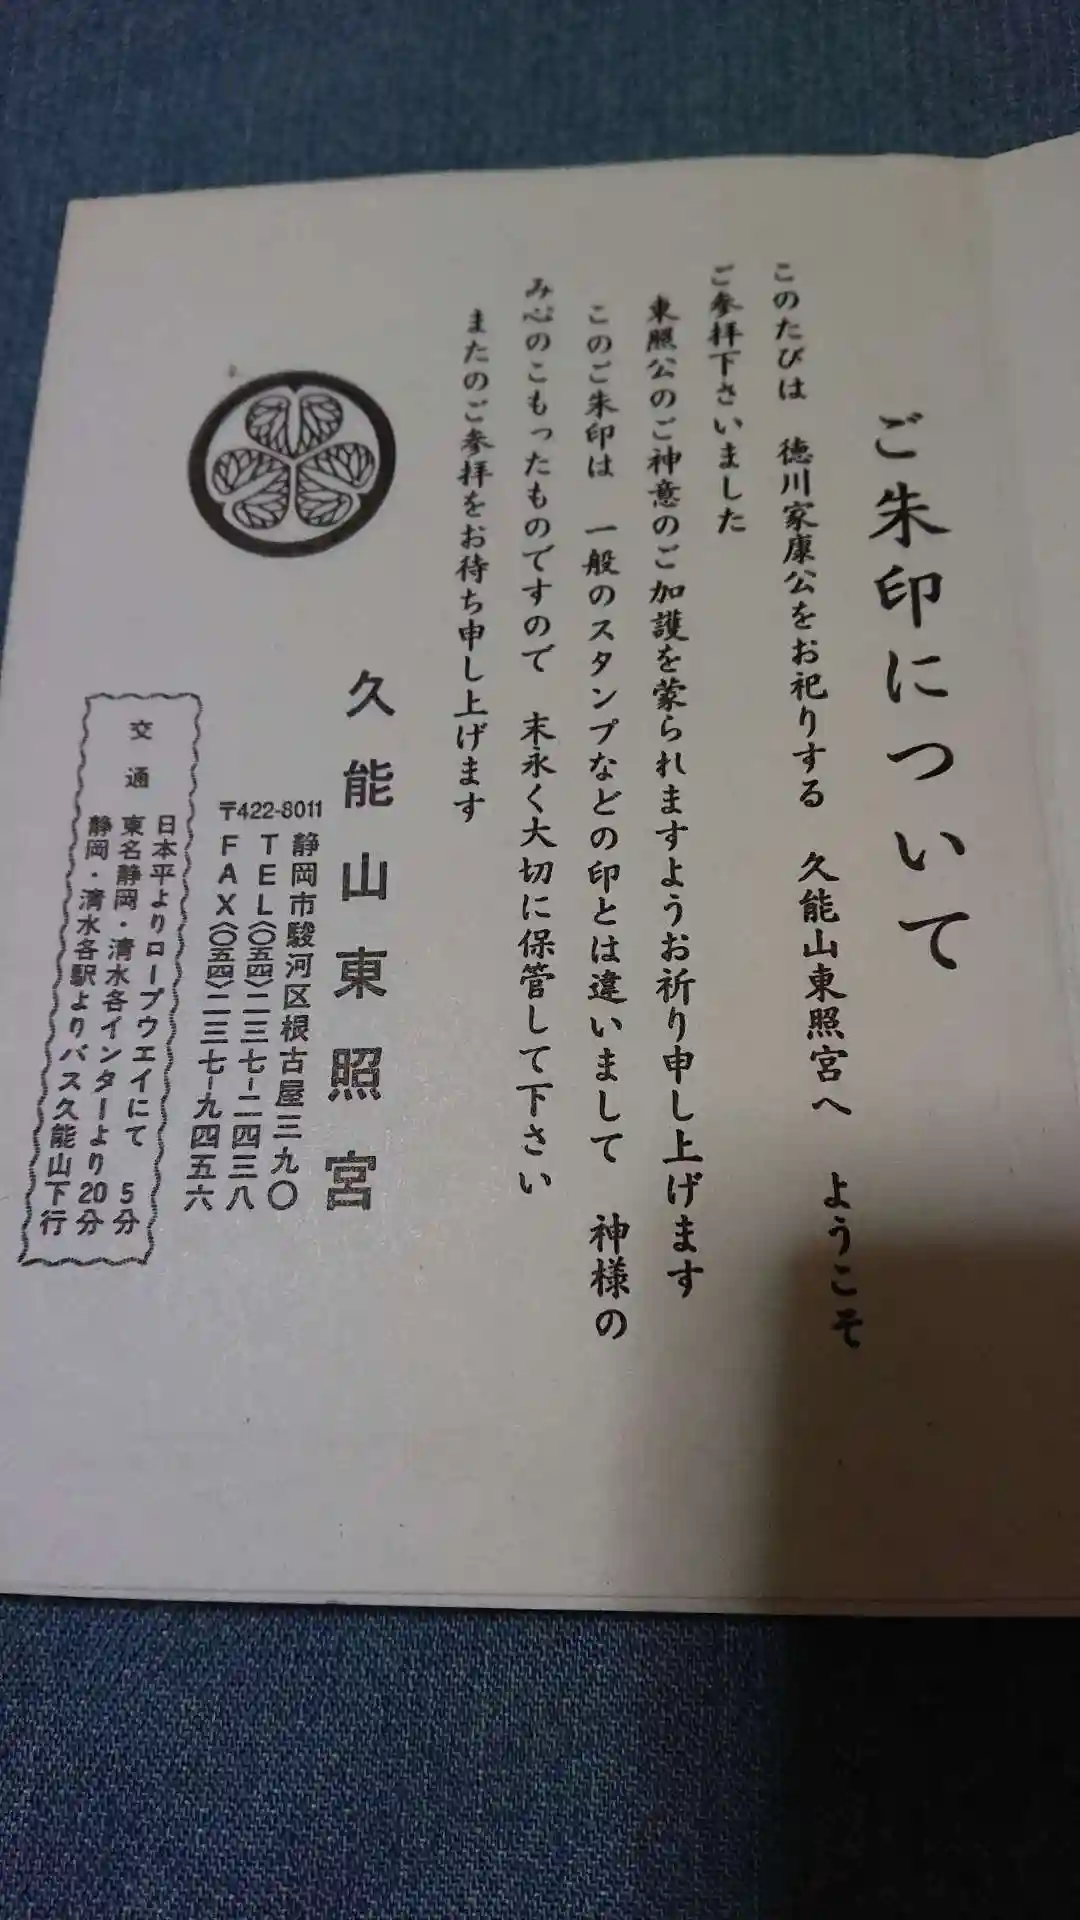 ご朱印について
このたびは 徳川家康公をお祀りする 久能山東照宮へ ようこそ
ご参拝下さいました
東照公のご神意のご加護を蒙られますようお祈り申し上げます
このご朱印は 一般のスタンプなどの印とは違いまして 神様の
み心のこもったものですので 末永く大切に保管して下さい
またのご参拝をお待ち申し上げます
久能山東照宮
〒422-8011
静岡市駿河区根古屋三九〇
TEL〈〇五四〉二三七-二四三八
FAX〈〇五四〉二三七-九四五六
交通
日本平よりロープウエイにて 5分
東名静岡・清水各インターより20分
静岡・清水各駅よりバス久能山下行